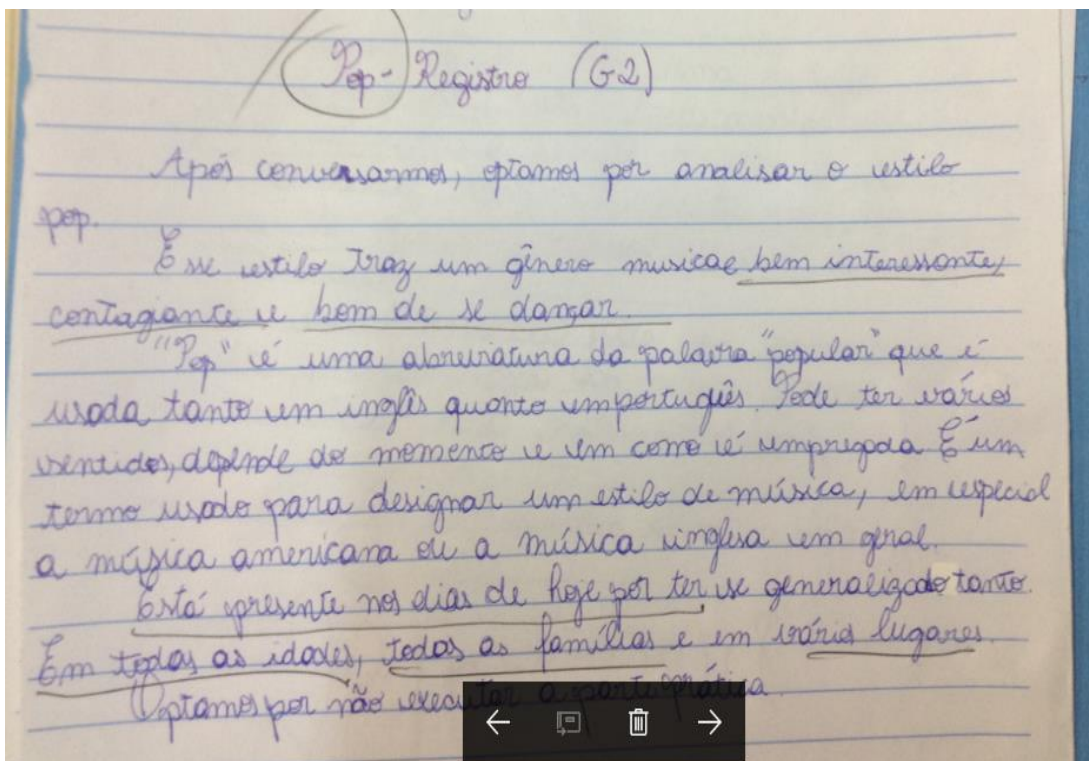 Pop - Registro (G2)
Após conversarmos, optamos por analisar o estilo
pop.
Esse estilo traz um gênero musical bem interessante,
contagiante e bom de se dançar.
"Pop" é uma abreviatura da palavra "popular" que é
usada tanto em inglês quanto em português. Pode ter vários
sentidos, depende do momento e em como é empregada É um
termo usado para designar um estilo de música, em especial
a música americana ou a música inglesa em geral.
Está presente nos dias de hoje por ter se generalizado tanto.
Em todas as idades, todas as famílias e em vários lugares.
Optamos por não executar a parte prática.